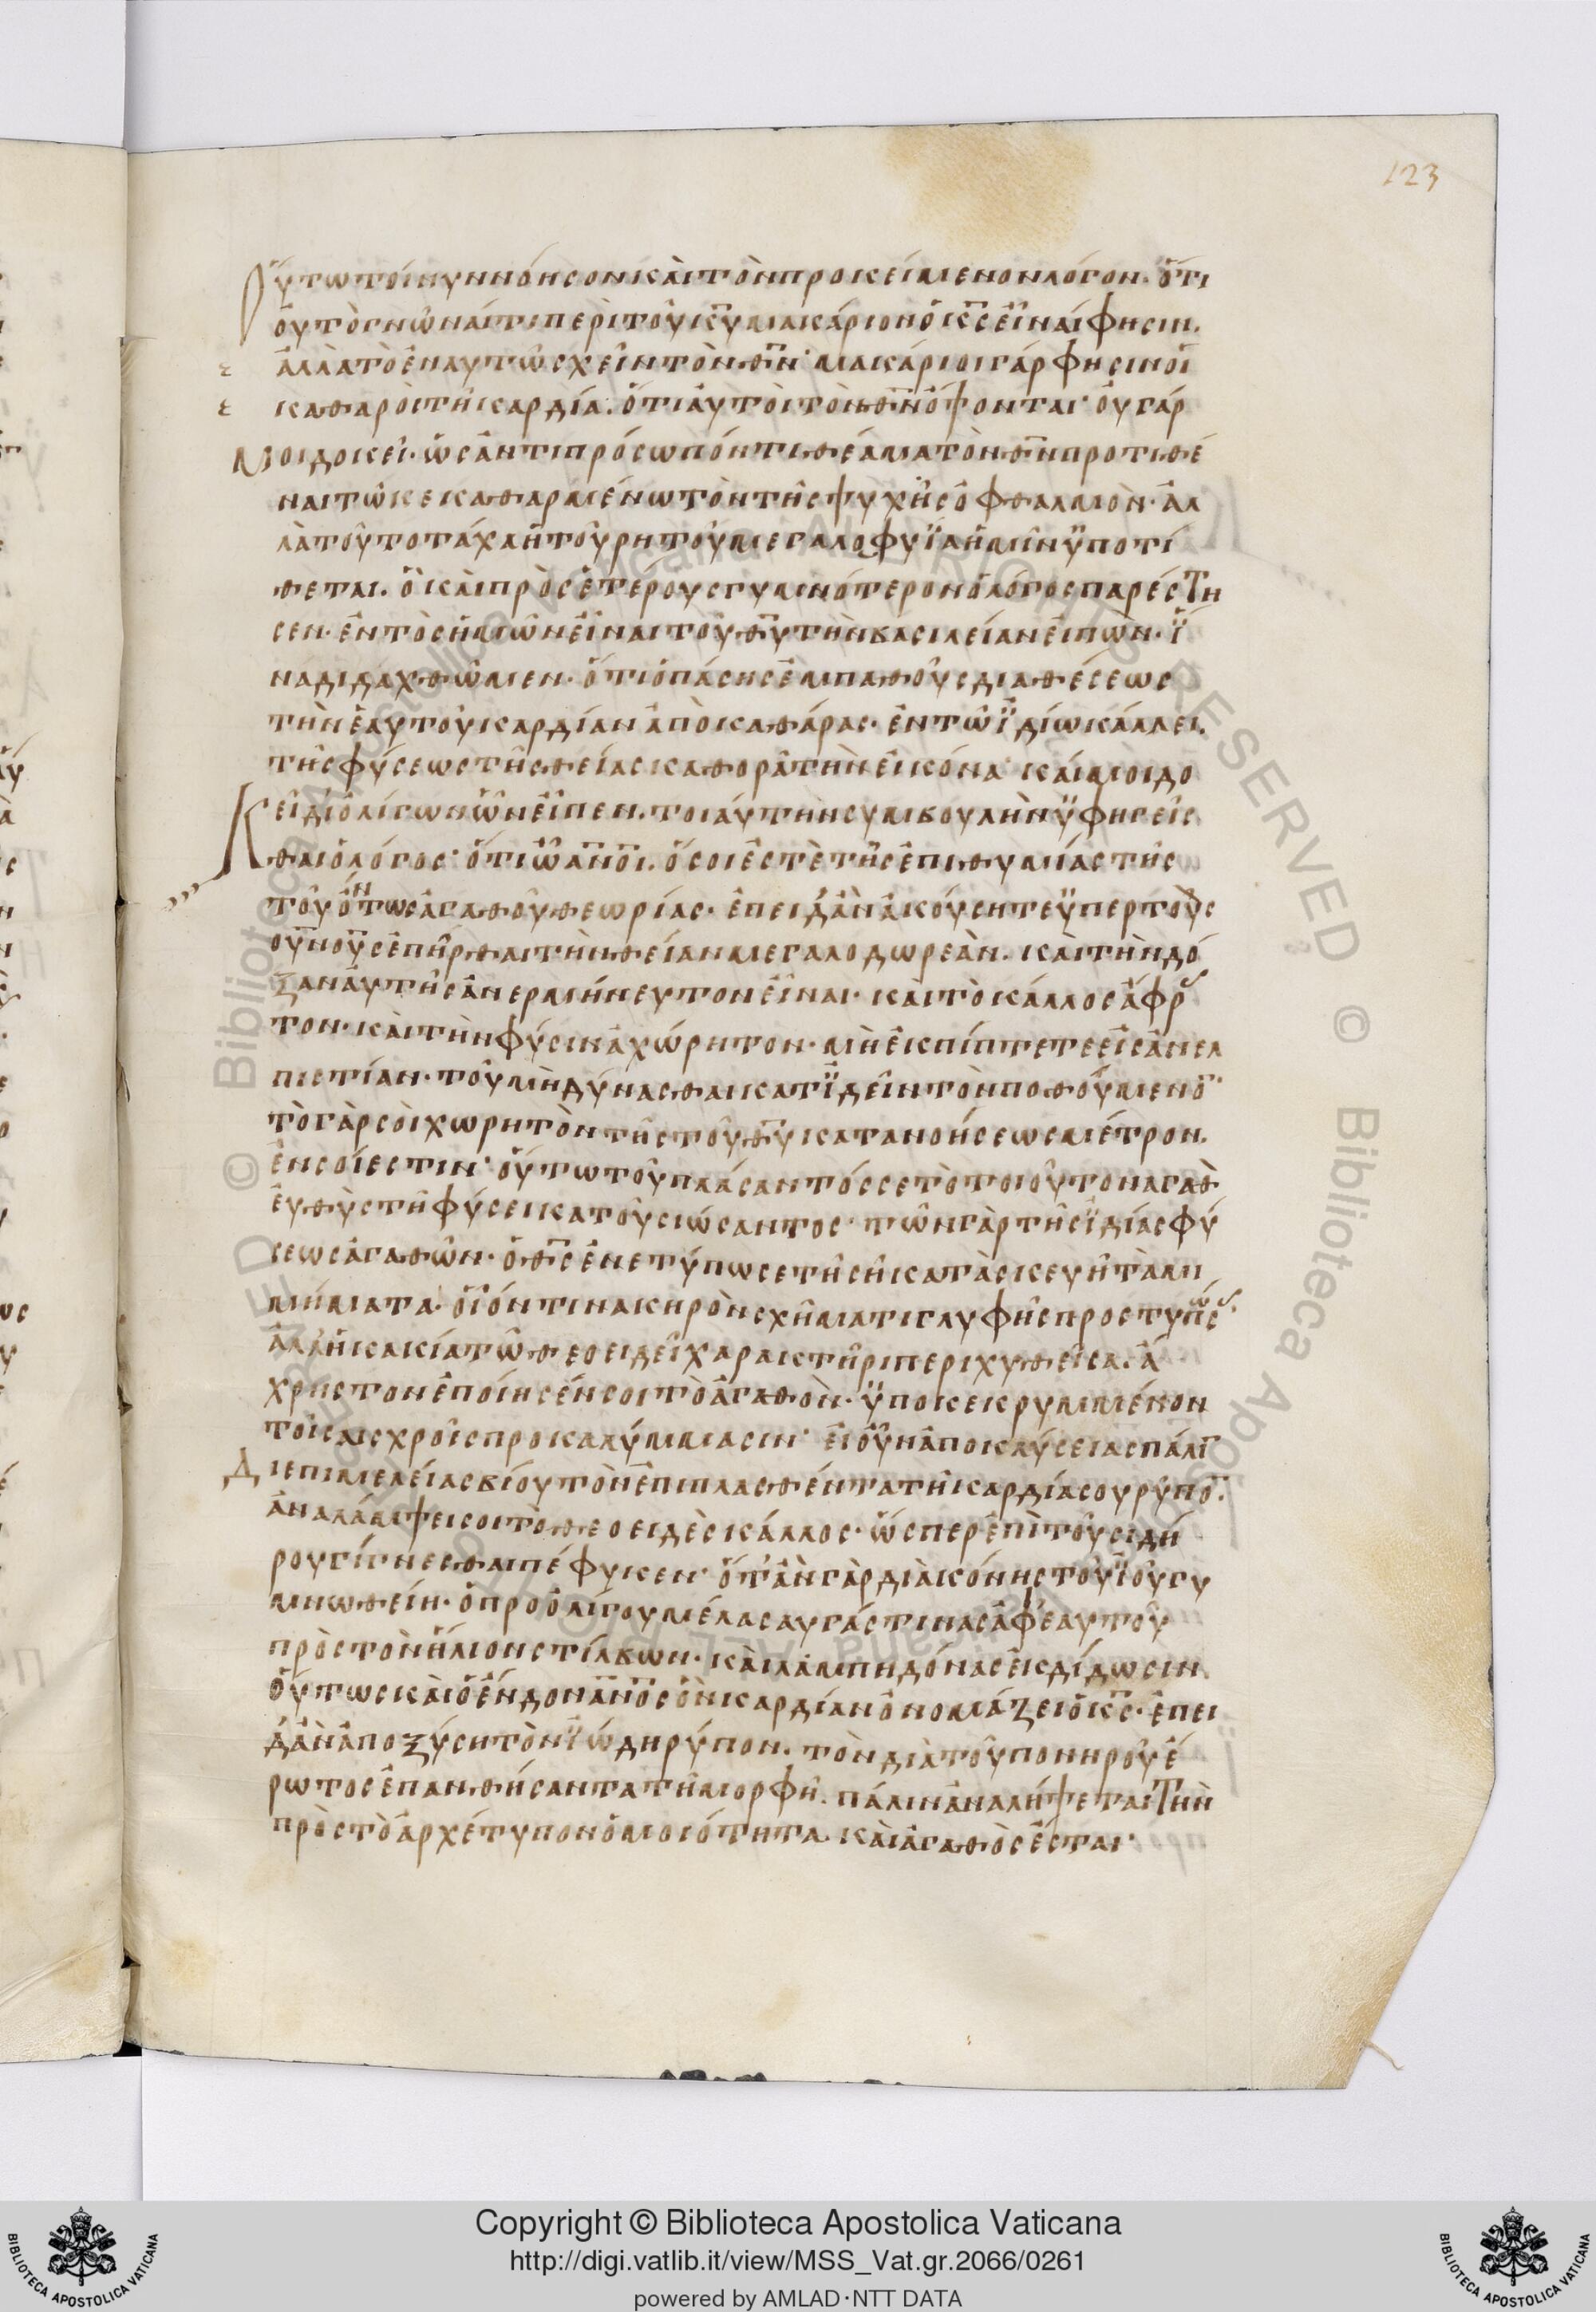 123
Οὕτω τοίνυν νόησον καὶ τὸν προκείμενον λόγον· ὅτι
οὐ τὸ γνῶναί τι περὶ τοῦ κ̅υ̅ μακάριον ὁ κ̅ς̅ εἶναί φησιν.
ἀλλὰ τὸ ἐν αυτῶ σχεῖν τὸν θ̅ν̅· μακάριοι γάρ φησιν οἱ
καθαροὶ τῆ καρδία. ὅτι αὐτοὶ τὸν θ̅ν̅ ὄψονται· οὐ γάρ
Μοι δοκεῖ· ὡς ἀντιπρόσωπόν τι θέαμα τὸν θ̅ν̅ προτιθέ
ναι τῶ κεκαθαρμένω τὸν τῆς ψυχῆς ὀφθαλμὸν· ἀλ
λὰ τοῦτο τάχα ἡ τοῦ ρητοῦ μεγαλοφυΐα ἡμῖν ὑποτί
θεται. ὃ καὶ πρὸς ἑτέρους γυμνότερον ὁ λόγος παρέστη
σεν· ἐντὸς ἡμῶν εἶναι τοῦ θ̅υ̅ τὴν βασιλείαν εἰπὼν· ἵ
να διδαχθῶμεν· ὅτι ὁ πάσης ἐμπαθοῦς διαθέσεως
τὴν ἑαυτοῦ καρδίαν ἀποκαθάρας· ἐν τῶ ἰδίω κάλλει.
τῆς φύσεως τῆς θείας καθορᾶ τὴν εἰκόνα· καί μοι δο
Κεῖ δι ὀλίγων ὧν εἶπεν. τοιαύτην συμβουλὴν ὑφησεῖς
θαι ὁ λόγος· ὅτι ὦ α̅ν̅ο̅ι̅. ὅσοι ἐστὲ τῆς ἐπιθυμίας τῆς
τοῦ ὄντως ἀγαθοῦ θεωρίας· ἐπειδὰν ἀκούσητε ὑπερ τοὺς
ο̅υ̅ν̅ο̅υ̅ς ἐπῆρθαι τὴν θείαν μεγαλοδωρεὰν. καὶ τὴν δό
ξαν αὐτῆς ἀνερμήνευτον εἶναι· καὶ τὸ κάλλος ἄφρ
τον· καὶ τὴν φύσιν ἀχώρητον· μὴ ἐκπίπτετε εἰς ἀνελ
πιστίαν· τοῦ μὴ δύνασθαι κατϊδεῖν τὸν ποθούμενο̅·
τὸ γὰρ σοὶ χωρητὸν τῆς τοῦ θ̅υ̅ κατανοήσεως μέτρον.
ἐν σοί εστιν· οὕτω τοῦ πλάσαντός σε τὸ τοιοῦτον αγαθ
ἐυθὺς τῆ φύσει κατουσιώσαντος· τῶν γὰρ τῆς ἰδίας φύ
σεως ἀγαθῶν· ὁ θ̅ς̅ ἐνετύπωσε τῆ σῆ κατασκευῆ τὰ μι
μήματα· οἷόν τινα κηρὸν σχήματι γλυφῆς προστυπώς·
ἀλλ ἡ κακία τῶ θεοειδεῖ χαρακτῆρι περιχυθεῖσα. ἄ
χρηστον ἐποίησέν σοι τὸ ἀγαθὸν· ὑποκεκρυμμένον
τοῖς αισχροῖς προκαλύμμασιν· εἰ οὖν ἀποκλύσειας πάλι̅
Δι επιμελείας βίου τὸν ἐπιπλασθέντα τῆ καρδία σου ρύπο̅.
ἀναλάμψει σοι τὸ θεοειδὲς κάλλος· ὥσπερ ἐπὶ τοῦ σιδή
ρου γίγνεσθαι πέφυκεν· ὅτἂν γὰρ διὰ ἀκόνης τοῦ ἰοῦ γυ
μνωθείη· ὁ προ ὀλίγου μέλας αυγάς τινας ἀφ εαυτοῦ
πρὸς τὸν ἥλιον στίλβων· καὶ λαμπηδόνας ἐκδίδωσιν
Οὕτως καὶ ὁ ἔνδον α̅ν̅ο̅ς̅ ὃν καρδίαν ὀνομάζει ὁ κ̅ς̅· ἐπει
δὰν ἀποξύση τὸν ἰώδη ρύπον. τὸν διὰ τοῦ πονηροῦ ἔ
ρωτος ἐπανθήσαντα τῆ μορφῆ. πάλιν ἀναλήψεται τὴν
πρὸς τὸ ἀρχέτυπον ὁμοιότητα. καὶ ἀγαθὸς ἔσται·
Copyright © Biblioteca Apostolica Vaticana
http://digi.vatlib.it/view/MSS_Vat.gr.2066/0261
powered by AMLAD·NTT DATA